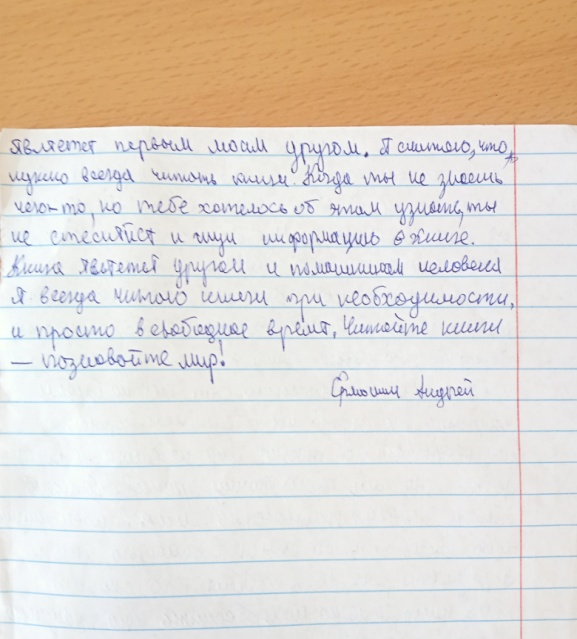 является первым моим другом. Я считаю, что,
нужно всегда читать книги. Когда ты не знаешь
чего-то, но тебе хотелось об этом узнать, ты
не стесняйся и ищи информацию в книге.
Книга является другом и помощником человека
Я всегда читаю книги при необходимости,
и просто в свободное время. Читайте книги
— познавайте мир!
Андрей